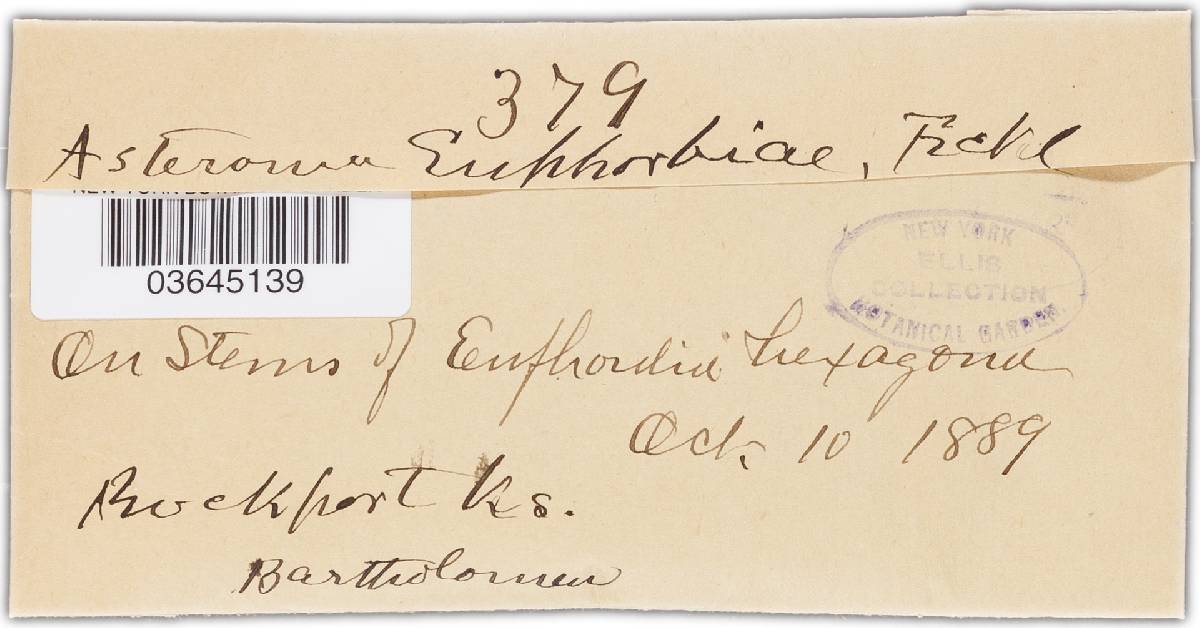 379
Asteroma Euphorbiae, Fckl
03645139
NEW YORK
ELLIS
COLLECTION
BOTANICAL GARDEN.
On Stems of Euphordia hexagona
Oct. 10 1889
Rockport Ks.
Bartholomew